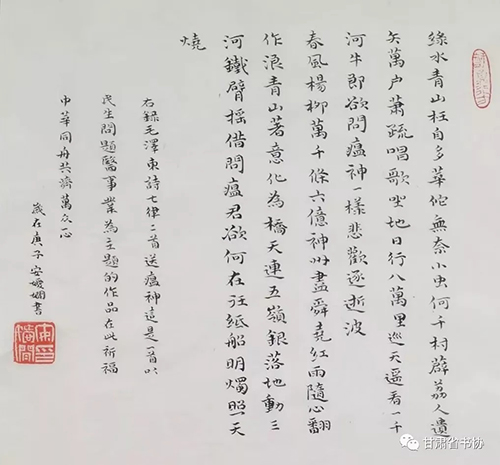 綠水青山枉自多華佗無奈小虫何千村薜荔人遺
矢萬户蕭疏唱歌坐地日行八萬里巡天遥看一千
河牛郎欲問瘟神一樣悲歡逐逝波
春風楊柳萬千條六億神州盡舜堯紅雨隨心翻
作浪青山著意化為橋天連五嶺銀落地動三
河鐵臂摇借問瘟君欲何在往紙船明燭照天
燒
右録毛澤東詩七律二首送瘟神這是一首以
民生問題醫事業為主題的作品在此祈福
中華同舟共濟萬众一心
歲在庚子安嫻書
甘肃省书协